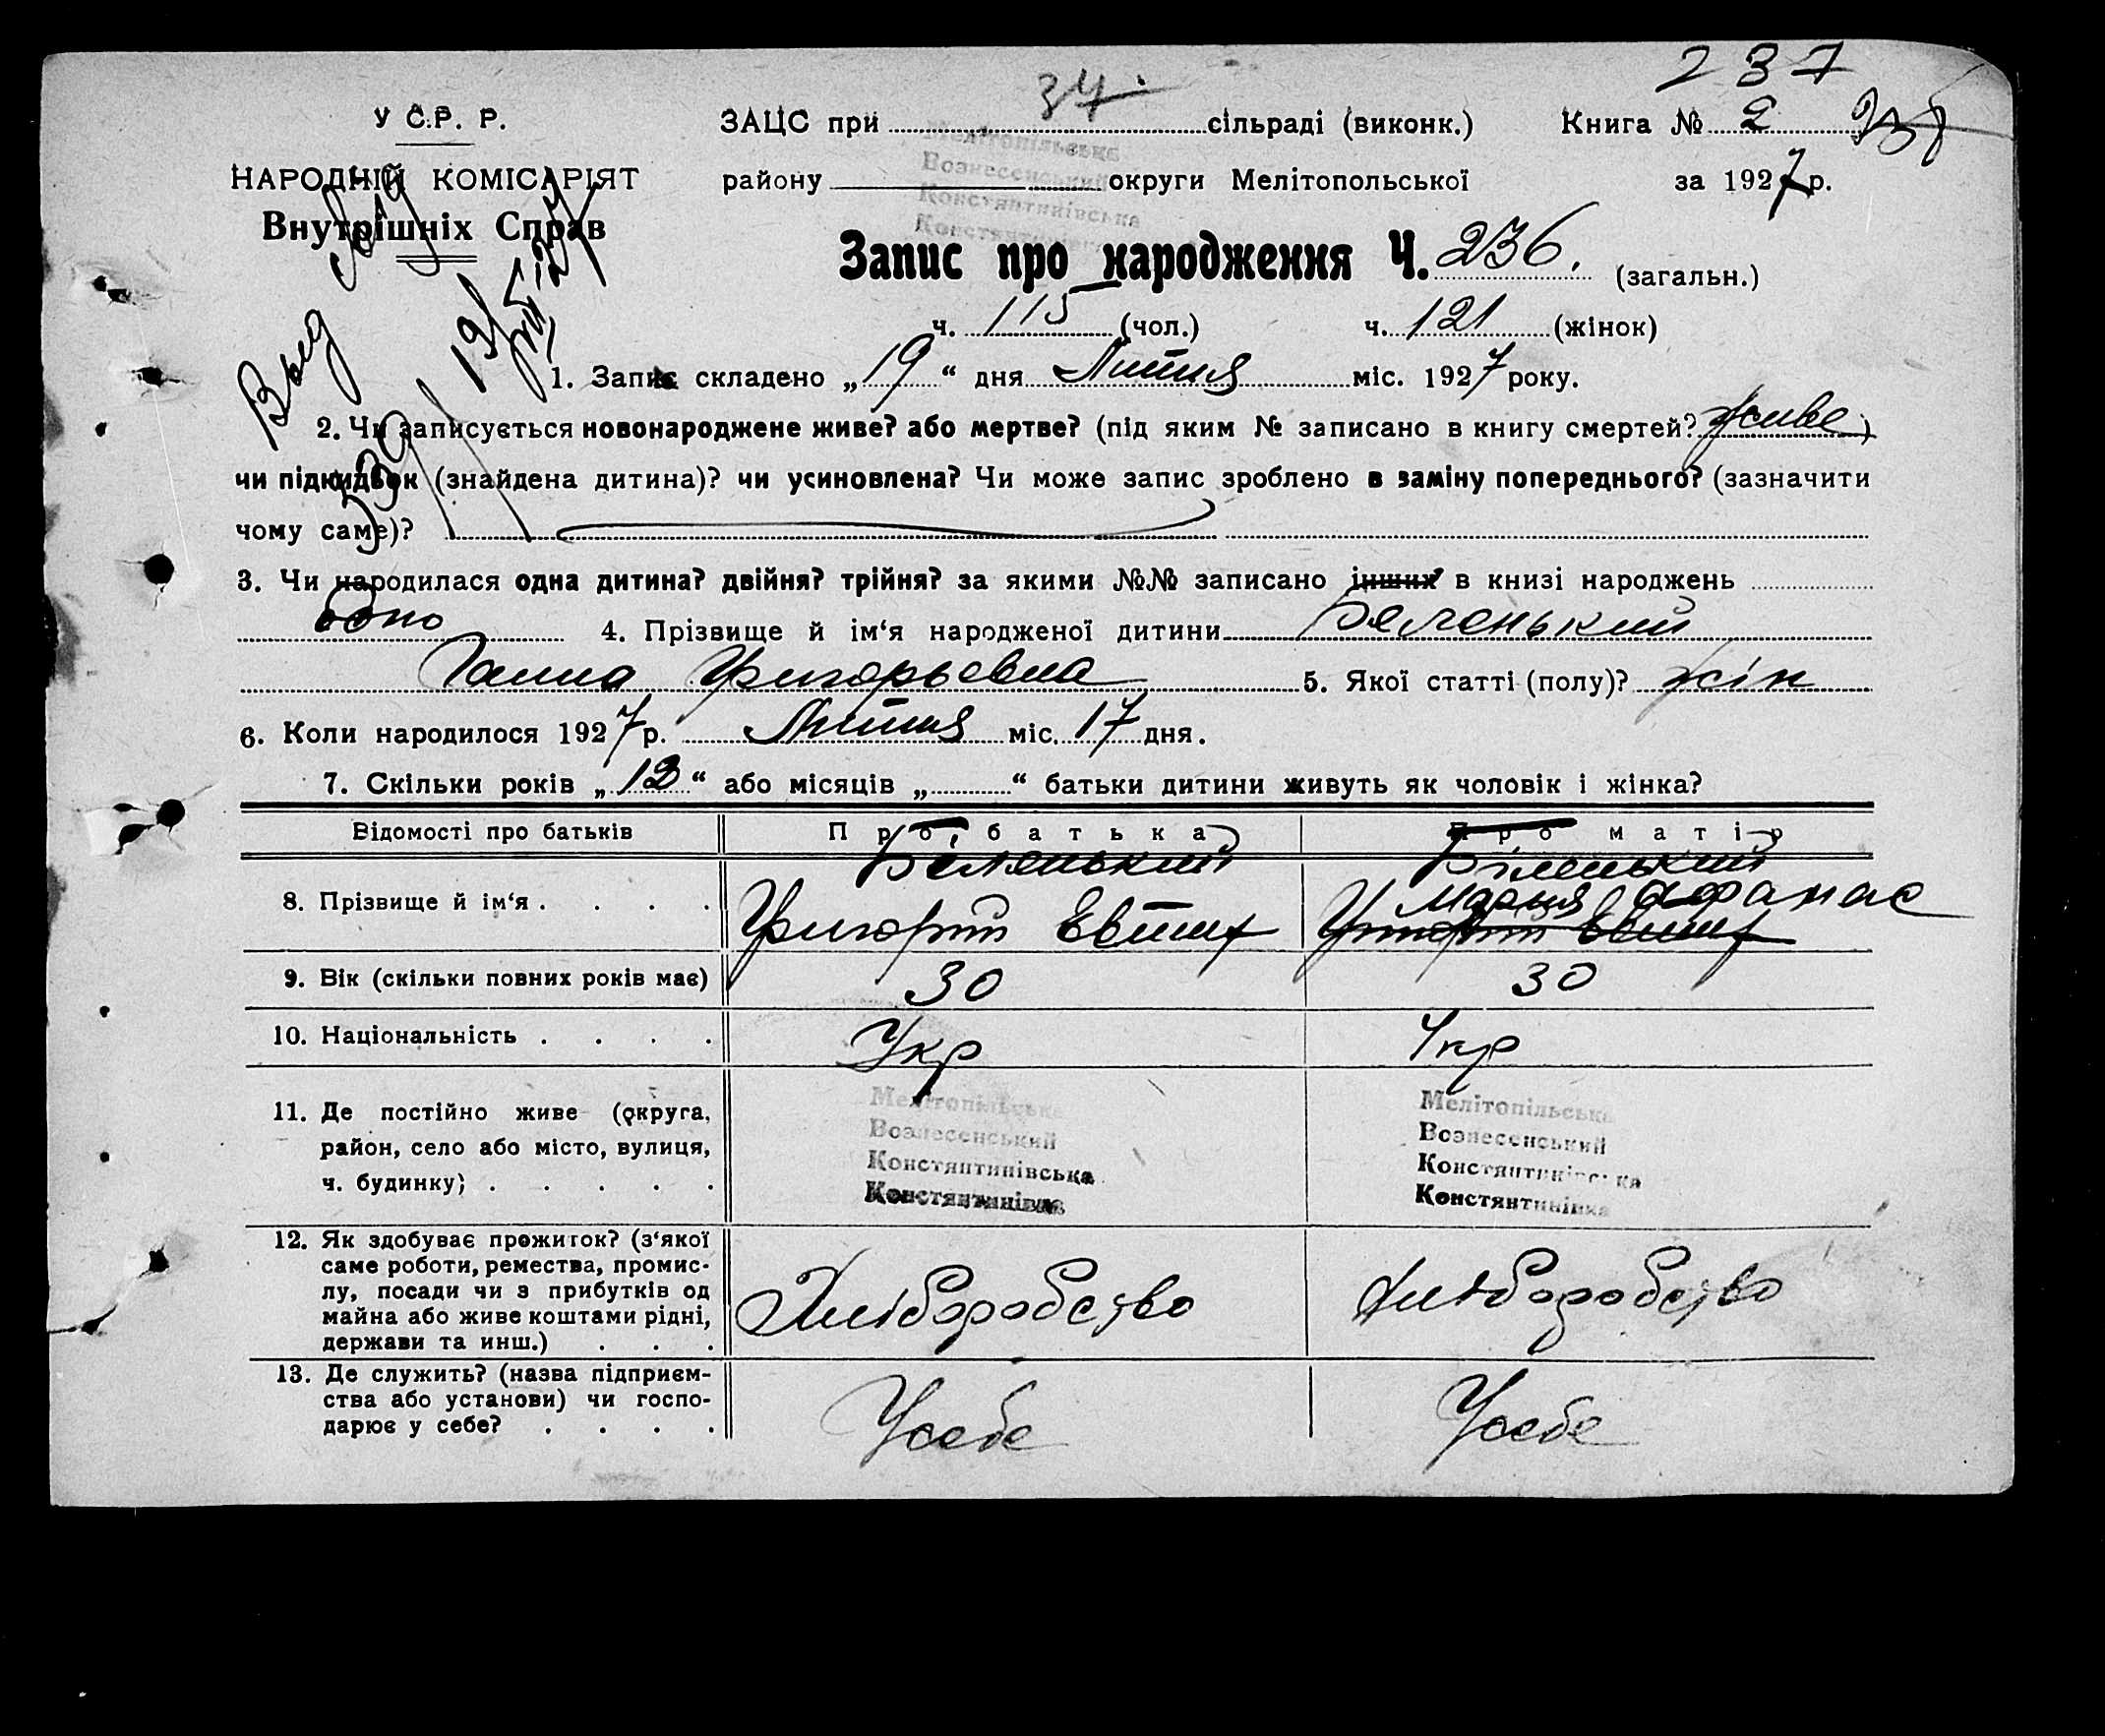 237
34
У С.Р. Р.
ЗАЦС при сільраді (виконк.) Книга № 2
Мелітопільська
НАРОДНІЙ КОМІСАРІЯТ
району округи Мелітопольської за 1927 р.
Вознесенський
Внутрішніх Справ
Константинівська
Запис про народження Ч. 236. (загальн.)
ч. 115 (чол.) ч. 121 (жінок)
1. Запис складено „19“ дня Липня міс. 1927 року.
2. Чи записується новонароджене живе? або мертве? (під яким № записано в книгу смертей? живе)
чи підкидьок (знайдена дитина)? чи усиновлена? Чи може запис зроблено в заміну попереднього? (зазначити
чому саме)?
3. Чи народилася одна дитина? двійня? трійня? за якими №№ записано інших в книзі народжень
одно 4. Прізвище й ім‘я народженої дитини Беленький
Ганна Григорьевна 5. Якої статті (полу)? жін
6. Коли народилося 1927 р. Липня міс. 17 дня.
7. Скільки років „12“ або місяців „ “ батьки дитини живуть як чоловік і жінка?
Відомості про батьків Про батька Про матір
Беленький Біленький
8. Прізвище й ім‘я . . . . Григорій Евтих Мария Афанас
Григорій Евтих
9. Вік (скільки повних років має) 30 30
10. Національність . . . . Укр Укр
11. Де постійно живе (округа, Мелітопільська Мелітопільська
район, село або місто, вулиця, Вознесенський Вознесенський
ч. будинку) . . . . . Константинівська Константинівська
Константинівка Константинівка
12. Як здобуває прожиток? (з‘якої
саме роботи, ремества, промис-
лу, посади чи з прибутків од
майна або живе коштами рідні, Хліборобство Хліборобство
держави та инш.) . . .
13. Де служить? (назва підприєм-
ства або установи) чи госпо-
дарює у себе? . . . . Усебе Усебе